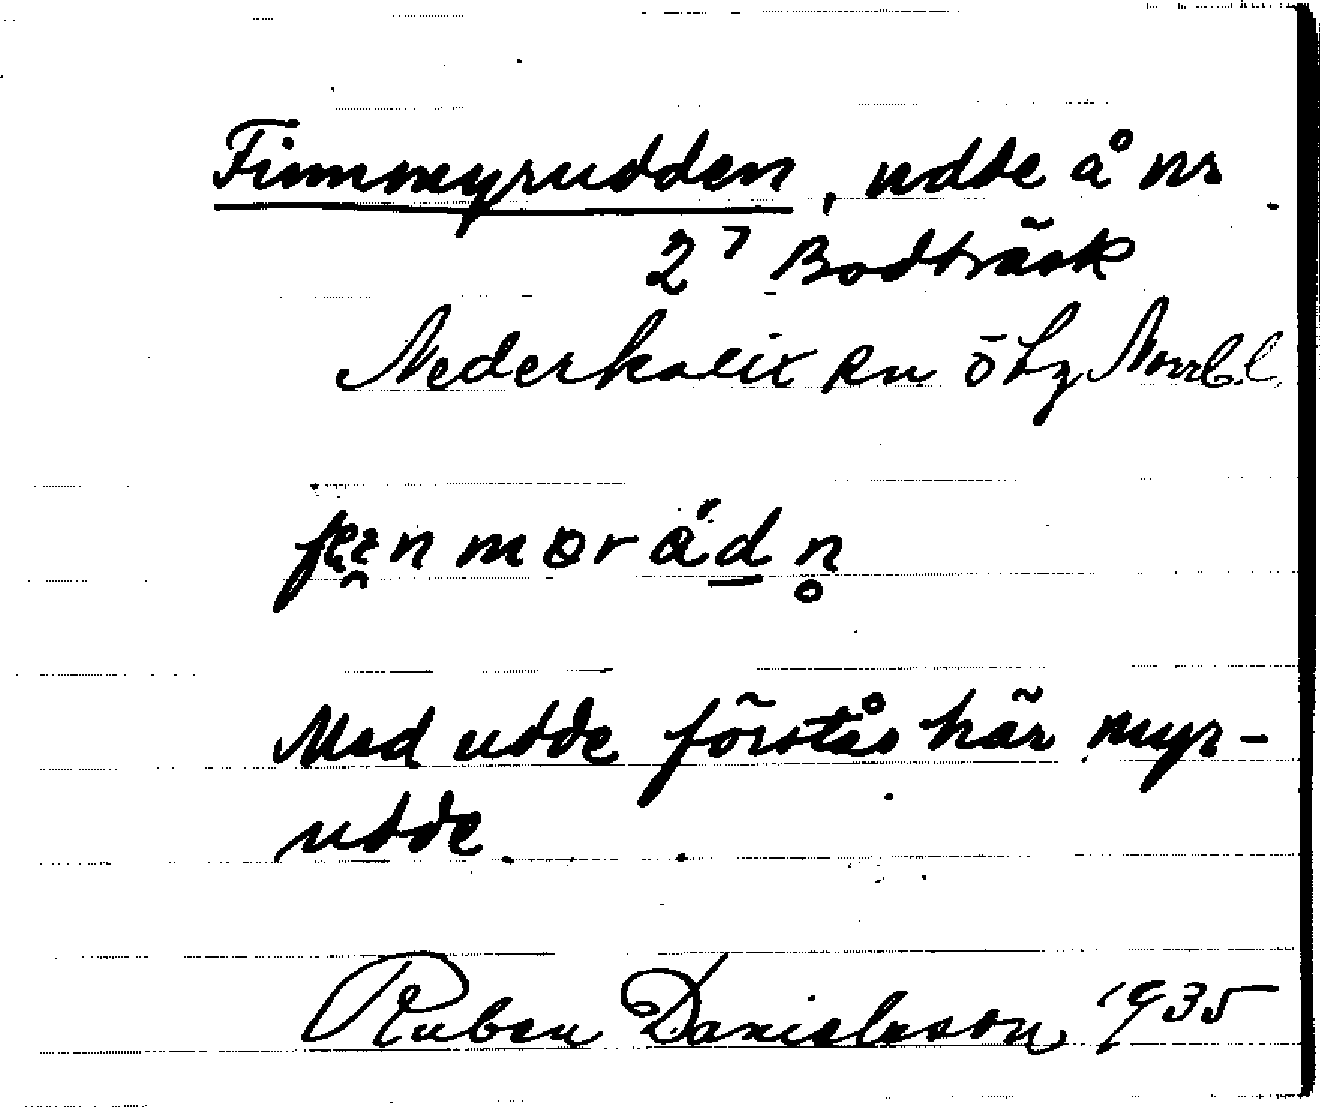 Finnmyrudden, udde å nr
2⁷ Bodträsk
Nederkalix sn ö hg Norrb. l.
nmorád̲n̥
Med udde förstås här myr-
udde.
Ruben Danielsson 1935